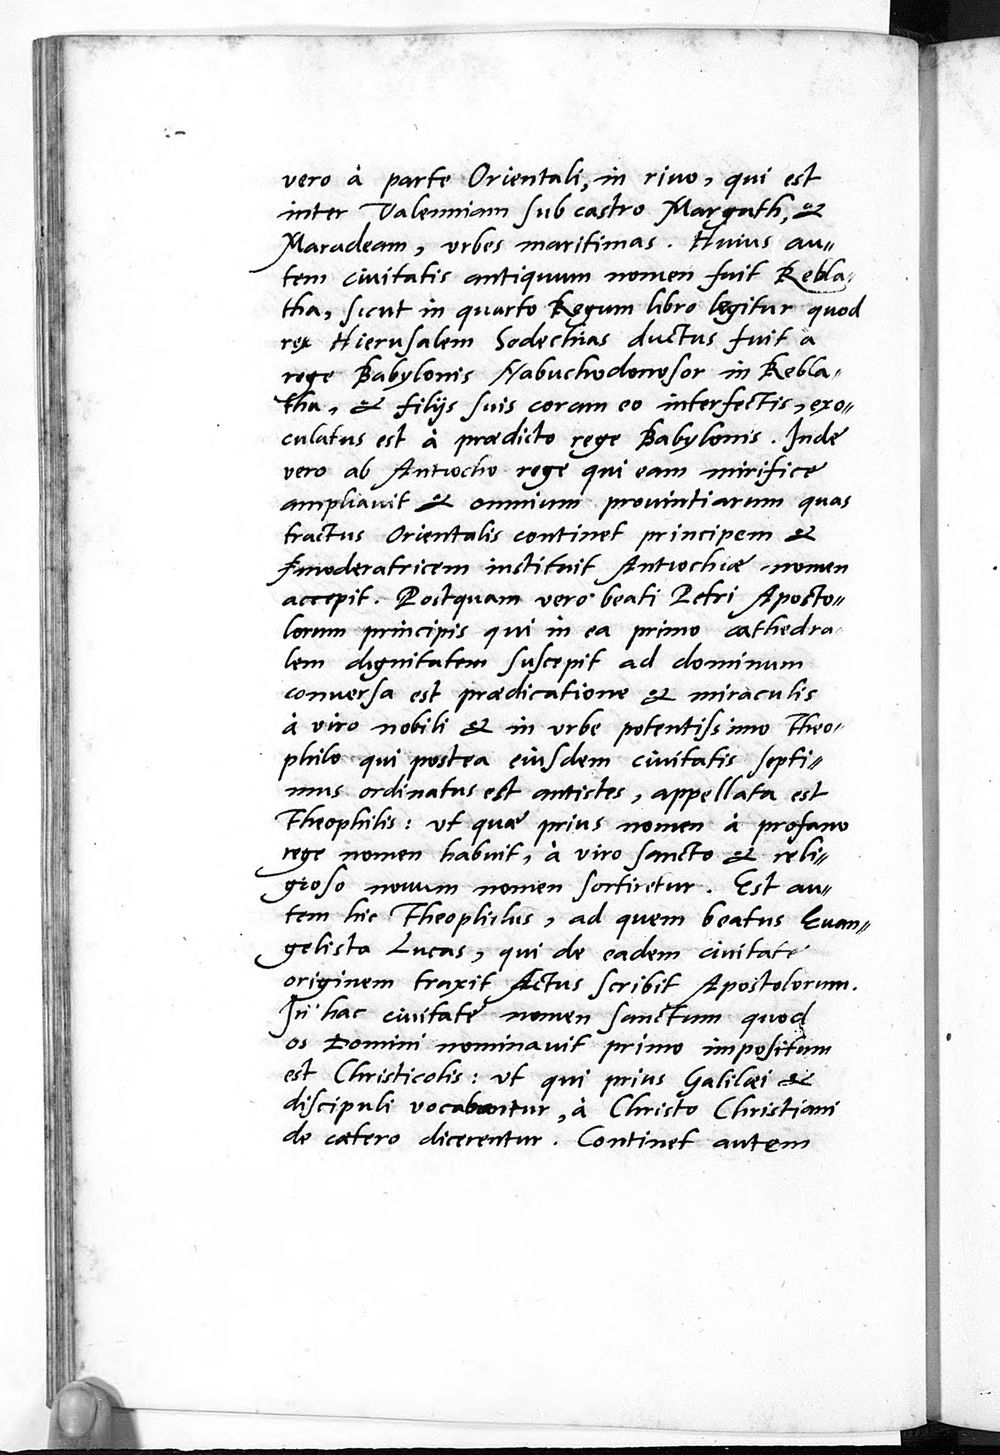 vero à parte Orientali, in riuo, qui est
inter Valenniam sub castro Margath, &
Maradeam, vrbes maritimas. Huius au-
tem ciuitatis antiquum nomen fuit Rebla-
tha, sicut in quarto Regum libro legitur quod
rex Hierusalem Sedechias ductus fuit a
rege Babylonis Nabuchodonosor in Rebla-
tha, & filijs suis coram eo interfectis, exo-
culatus est à prædicto rege Babylonis. Inde
vero ab Antiocho rege qui eam mirifice
ampliauit & omnium prouintiarum quas
tractus Orientalis continet principem &
moderatricem instituit Antiochiæ nomen
accepit. Postquam vero beati Petri Aposto-
lorum principis qui in ea primo cathedra-
lem dignitatem suscepit ad dominum
conuersa est prædicatione & miraculis
à viro nobili & in vrbe potentissimo Theo-
philo qui postea eiusdem ciuitatis septi-
mus ordinatus est antistes, appellata est
Theophilis: vt quæ prius nomen à profano
rege nomen habuit, à viro sancto & reli-
gioso nouum nomen sortiretur. Est au-
tem hic Theophilus, ad quem beatus Euan-
gelista Lucas, qui de eadem ciuitate
originem traxit Actus scribit Apostolorum.
In hac ciuitate nomen sanctum quod
os Domini nominauit primo impositum
est Christicolis: vt qui prius Galilæi &
discipuli vocabantur, à Christo Christiani
de cætero dicerentur. Continet autem